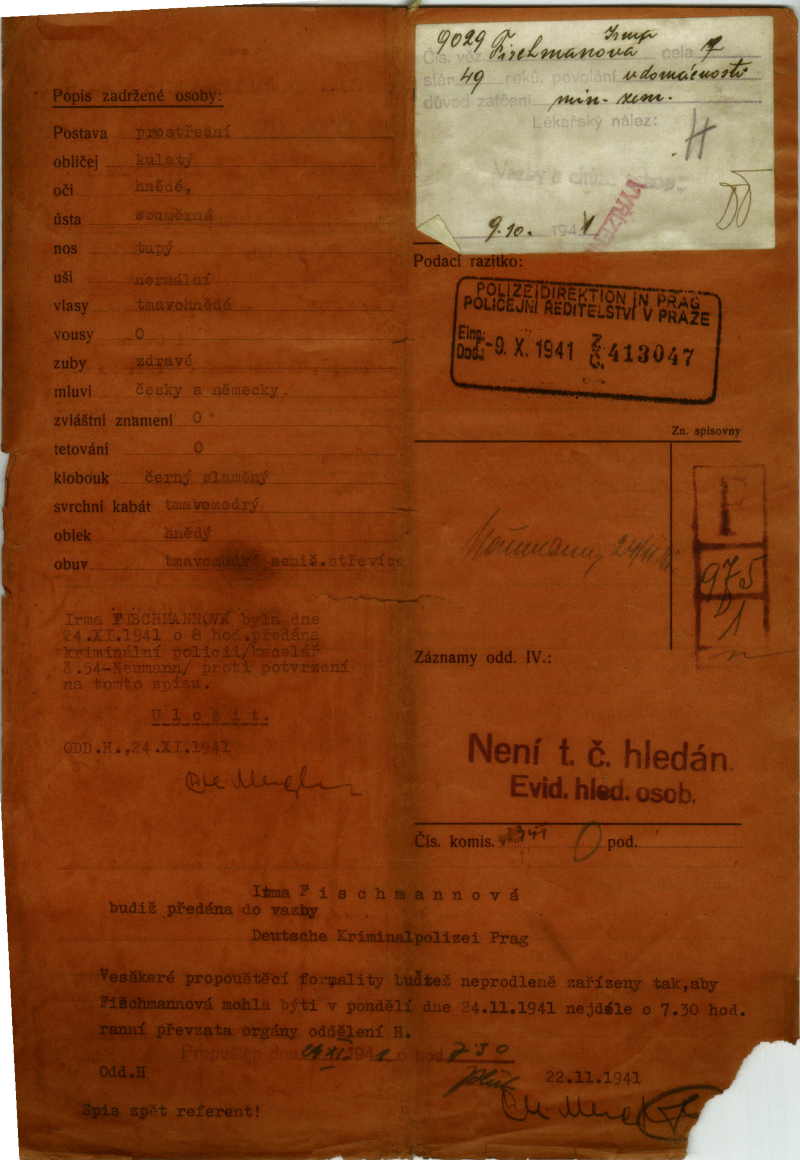 Popis zadržené osoby:
Postava prostřední
obličej kulatý
oči hnědé,
ústa souměrná
nos tupý
uši normální
vlasy tmavohnědé
vousy 0
zuby zdravé
mluví česky a německy.
zvláštní znamení 0
tetování 0
klobouk černý slaměný
svrchní kabát tmavomodrý
oblek hnědý
obuv tmavomodré střevíce
Irma FISCHMANNOVÁ byla dne
24.XI.1941 o 8 hod.předána
kriminální policii/kancelář
č.54-Neumann/ proti potvrzení
na tomto spisu.
U l o ž i t.
ODD.H.,24.XI.1941
Irma
9029 Fischmanova
Čís. věz. cela 7
stár 49 roků, povolání v domácnosti
důvod zatčení
Lékařský nález:
H
Vazby
9.10. 1941
Podací razítko:
POLIZEIDIREKTION IN PRAG
POLICEJNÍ ŘEDITELSTVÍ V PRAZE
Eing.:
Doš.: -9. X. 1941 413047
Zn. spisovny
Neumann
975
1
Záznamy odd. IV.:
Není t. č. hledán.
Evid. hled. osob.
Čís. komis. pod.
Irma F i s c h m a n n o v á
budiž předána do vazby
Deutsche Kriminalpolizei Prag
Veškeré propouštěcí formality buďtež neprodleně zařízeny tak,aby
Fischmannová mohla býti v pondělí dne 24.11.1941 nejdéle o 7.30 hod.
ranní převzata orgány oddělení H.
Propuštěn dne 24 XI 1941 o hod. 7 30
Odd.H 22.11.1941
Spis zpět referent!